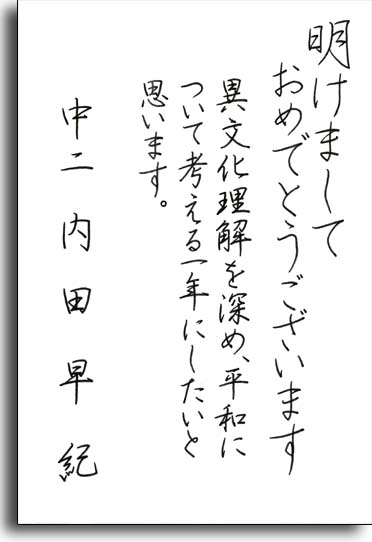 明けまして
おめでとうございます
異文化理解を深め、平和に
ついて考える一年にしたいと
思います。
中二 内田早紀